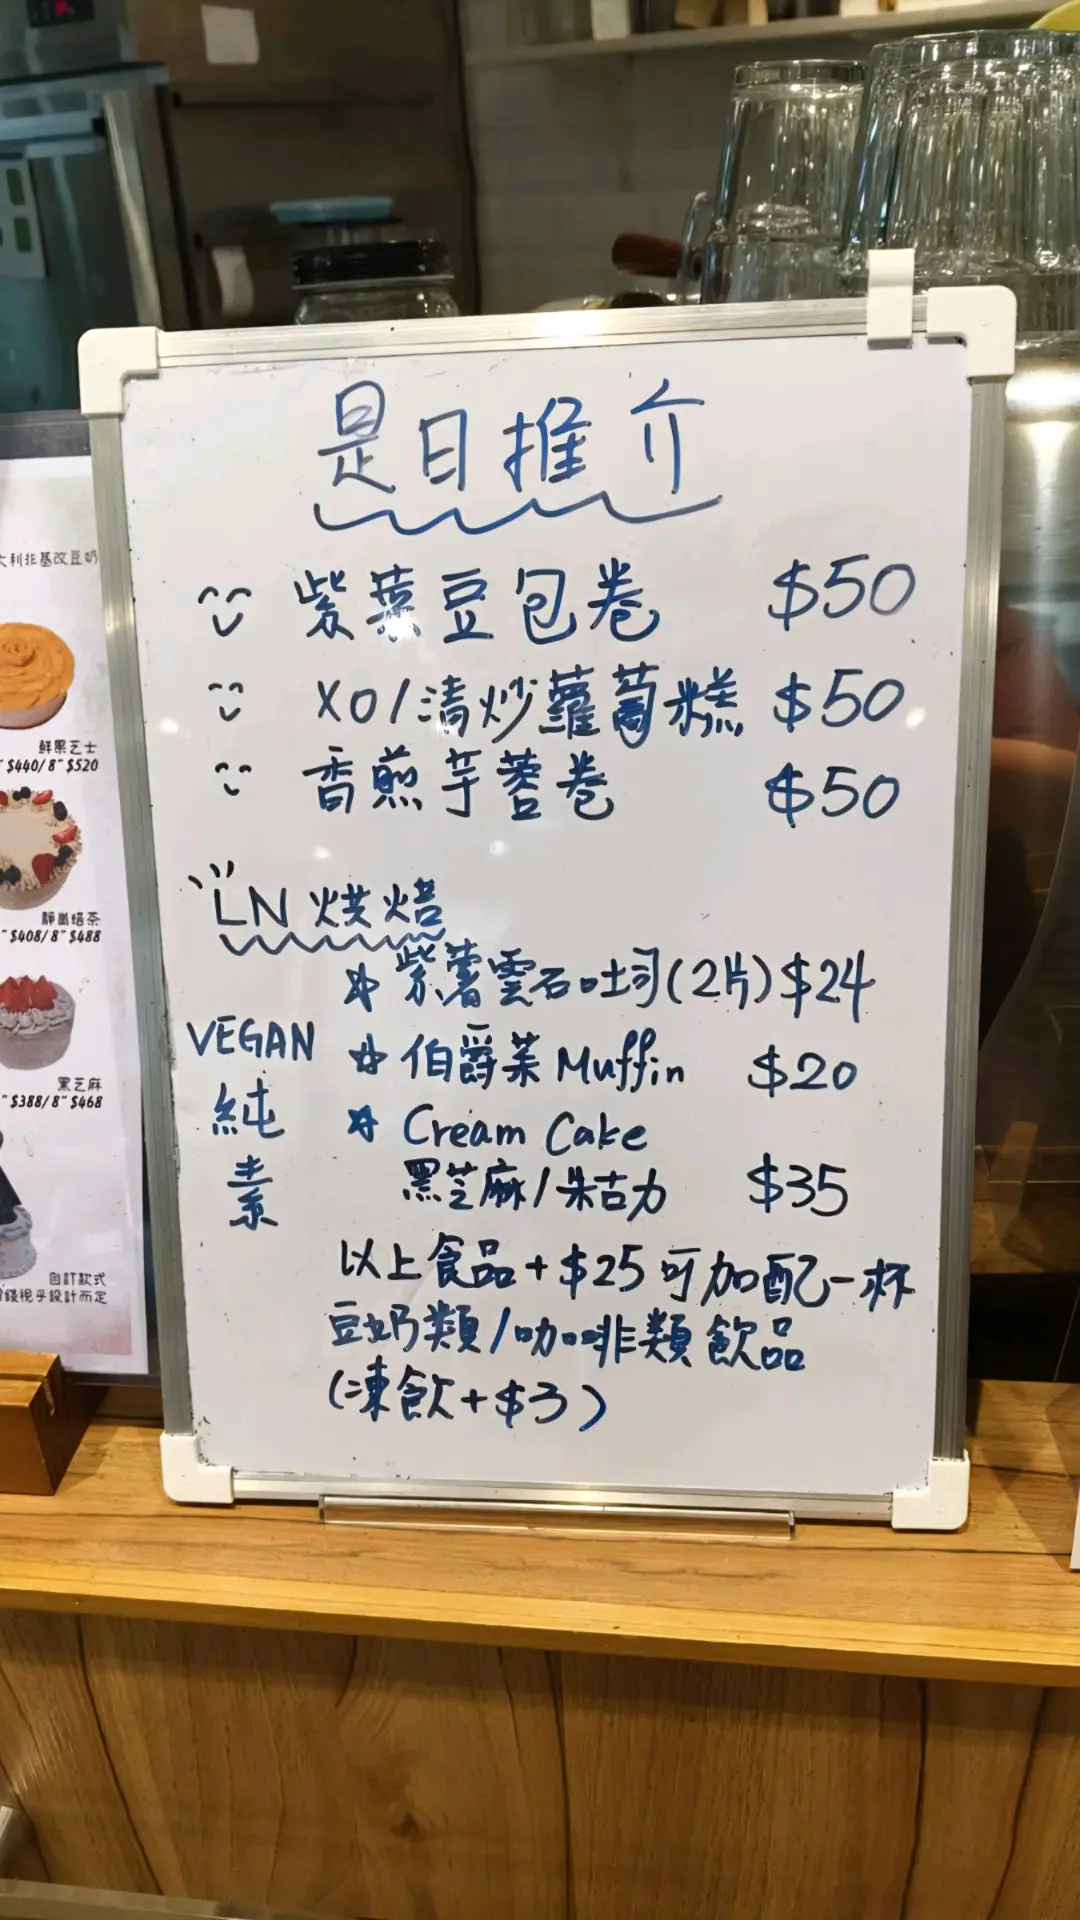 是日推介
紫菜豆包卷 $50
XO/清炒蘿蔔糕 $50
香煎芋蓉卷 $50
LN 烘焙
紫薯雲石吐司(2片) $24
VEGAN
伯爵茶 Muffin $20
純素
Cream Cake
黑芝麻/朱古力 $35
以上食品+$25可加配一杯
豆奶類/咖啡類飲品
(凍飲+$3)
利非基改豆奶
鮮果芝士
$440/8" $520
焙茶
" $408/8" $488
黑芝麻
" $388/8" $468
自訂款式
視乎設計而定